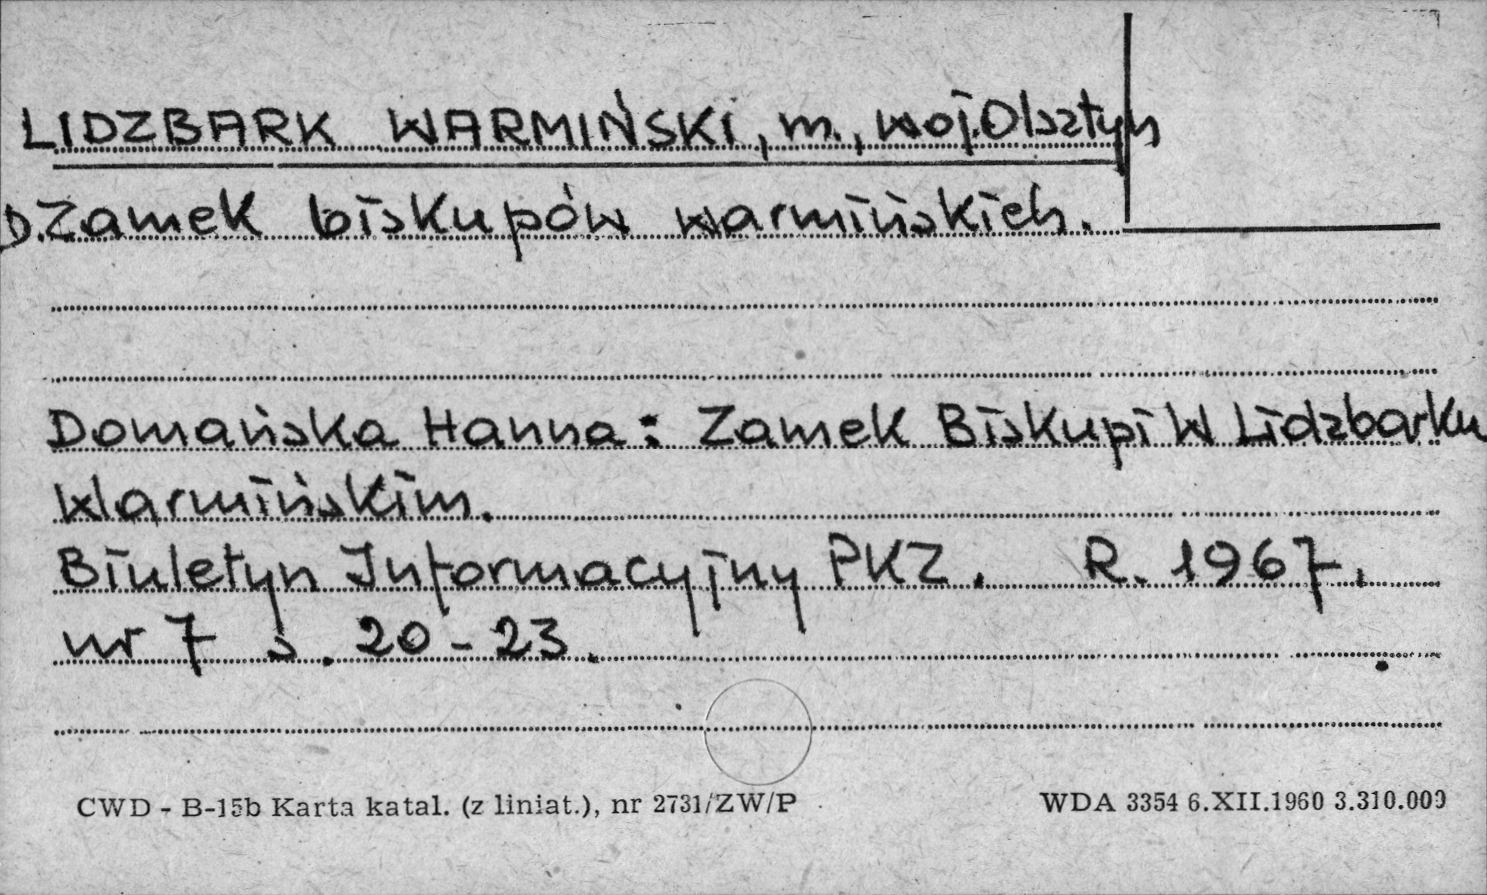 LIDZBARK WARMIŃSKI, m., woj. Olsztyn
D. Zamek biskupów warmińskich.
Domańska Hanna: Zamek Biskupi W Lidzbarku
Warmińskim.
Biuletyn Informacyjny PKZ. R. 1967,
nr 7 s. 20-23.
CWD - B-15b Karta katal. (z liniat.), nr 2731/ZW/P
WDA 3354 6.XII.1960 3.310.000